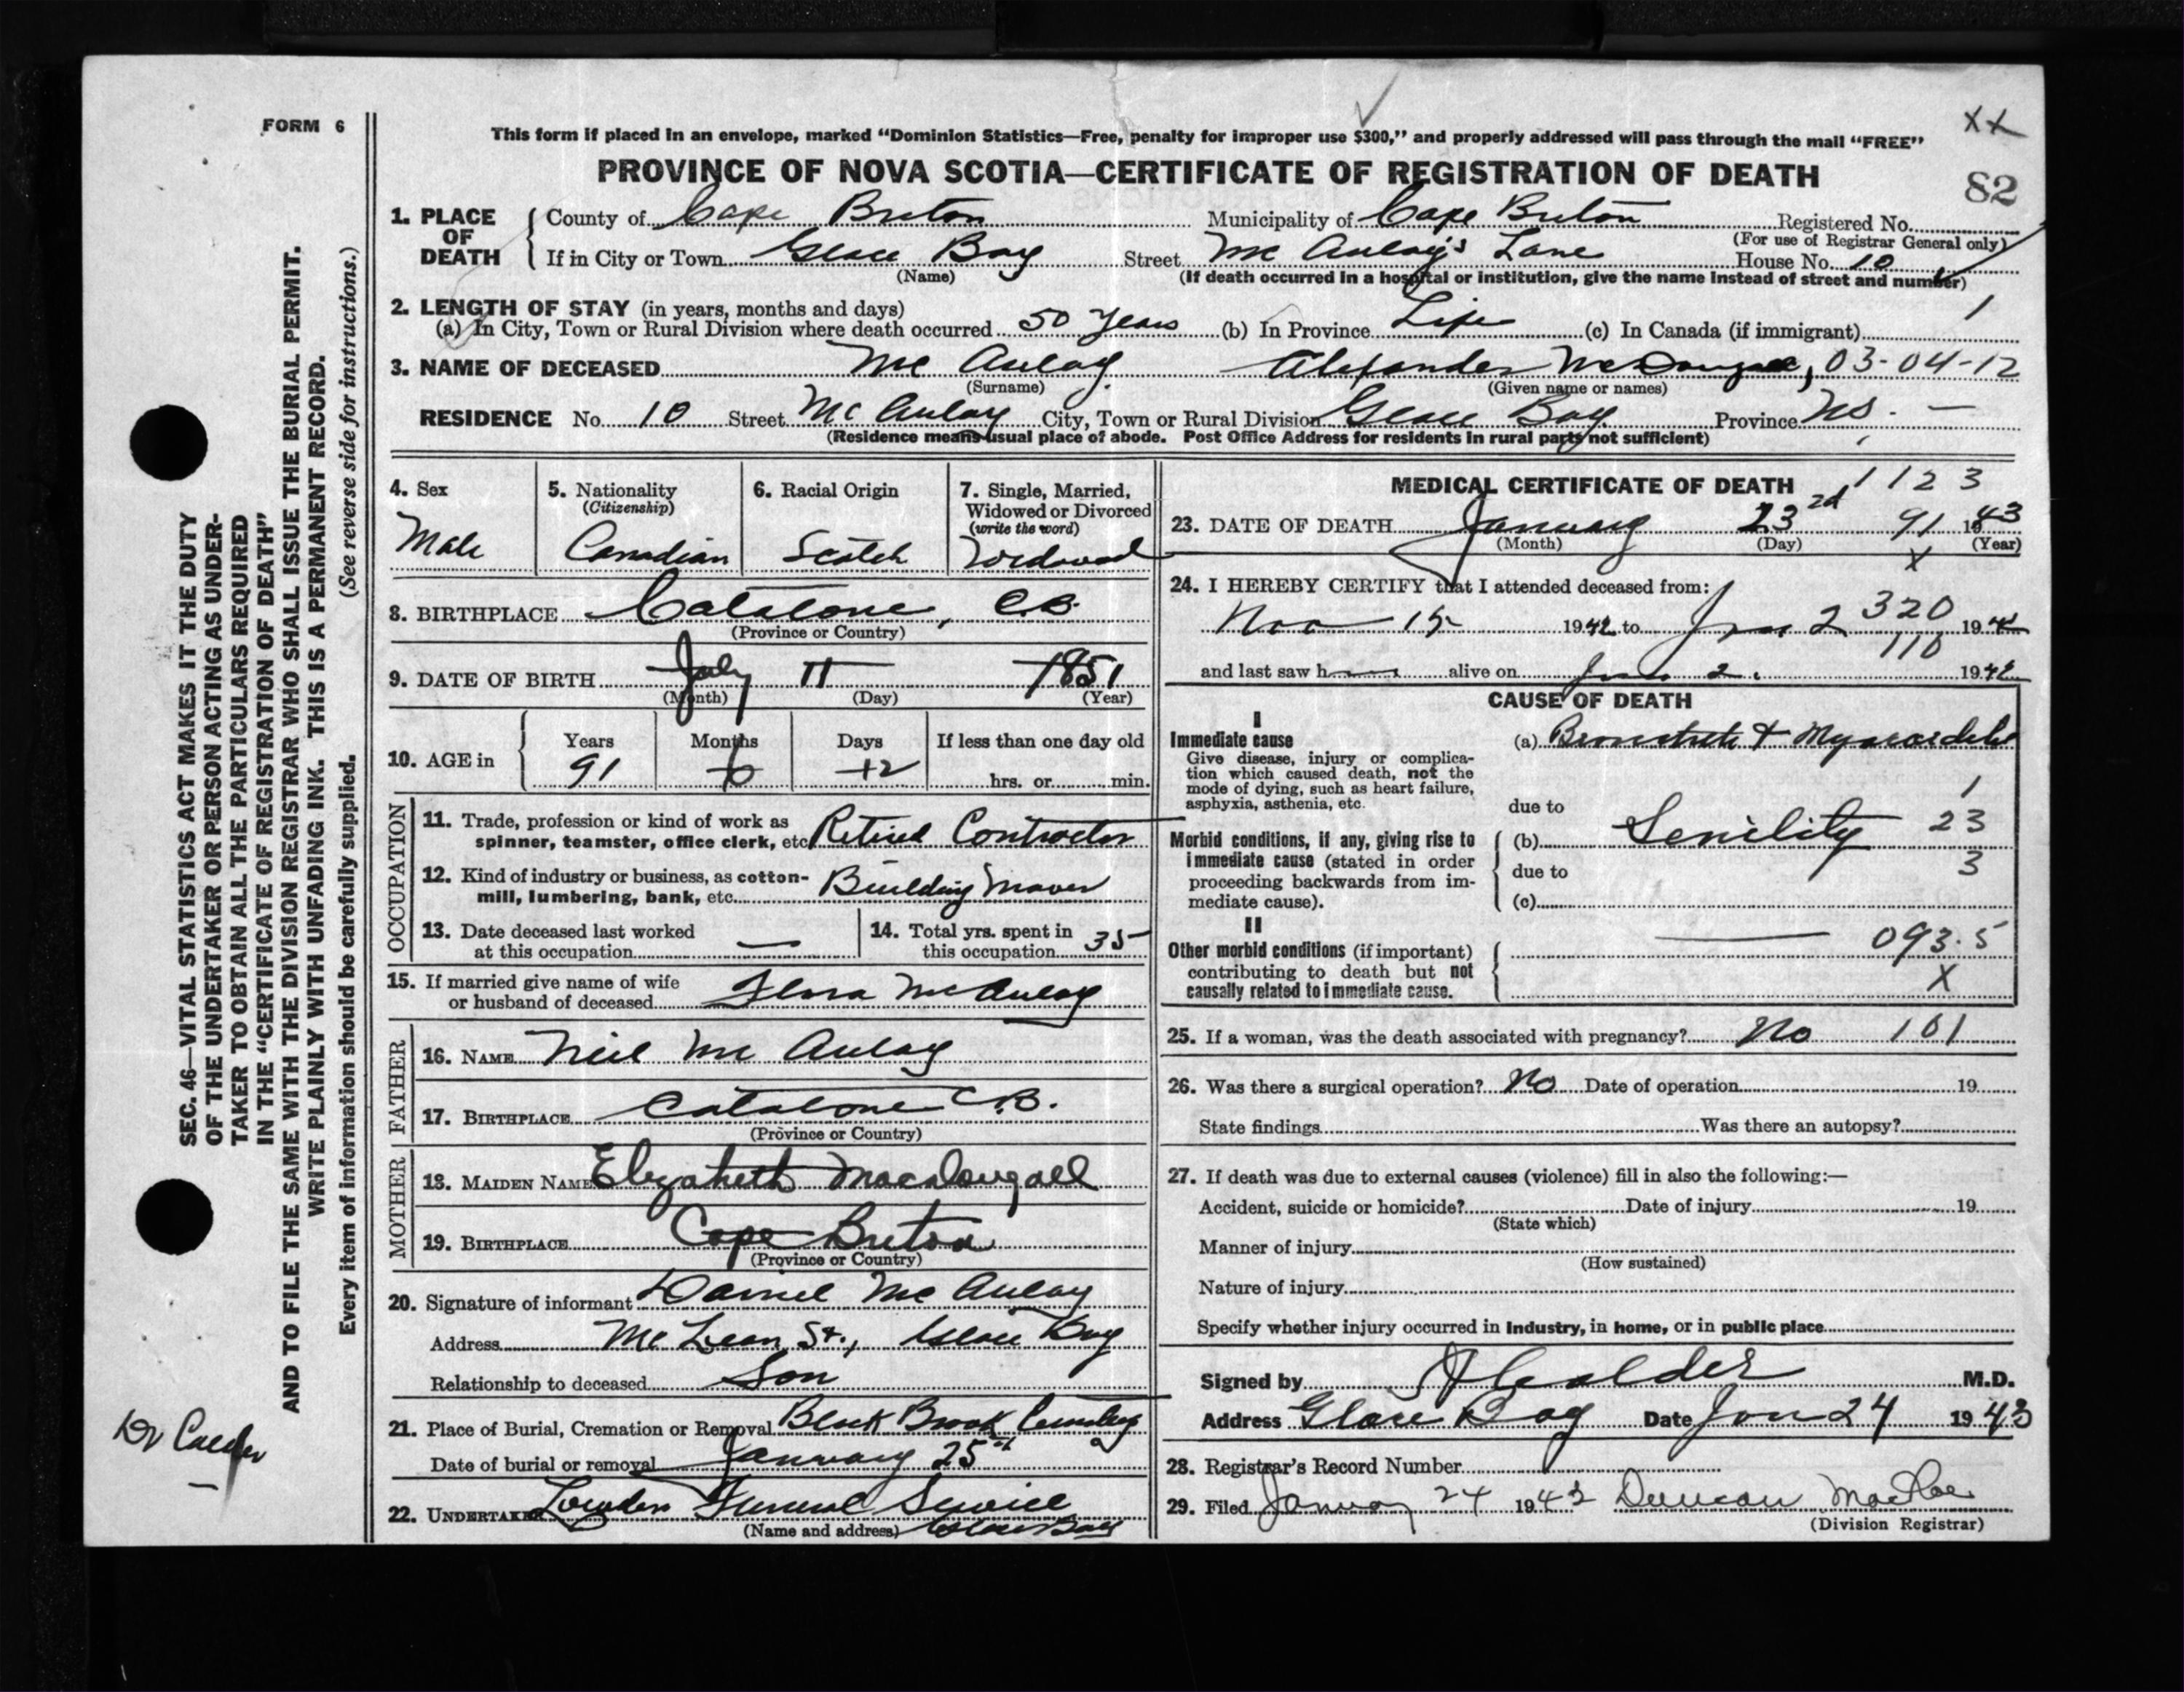 FORM 6
This form if placed in an envelope, marked “Dominion Statistics—Free, penalty for improper use $300,” and properly addressed will pass through the mail “FREE”
XX
PROVINCE OF NOVA SCOTIA—CERTIFICATE OF REGISTRATION OF DEATH
82
1. PLACE OF DEATH
County of Cape Breton Municipality of Cape Breton Registered No.
(For use of Registrar General only)
If in City or Town Glace Bay Street Mc Aulay's Lane House No. 10
(Name) (If death occurred in a hospital or institution, give the name instead of street and number)
2. LENGTH OF STAY (in years, months and days) 1
(a) In City, Town or Rural Division where death occurred 50 Years (b) In Province Life (c) In Canada (if immigrant)
3. NAME OF DECEASED Mc Aulay Alexander McDougall, 03-04-12
(Surname) (Given name or names)
RESIDENCE No. 10 Street Mc Aulay City, Town or Rural Division Glace Bay. Province NS. —
(Residence means usual place of abode. Post Office Address for residents in rural parts not sufficient)
4. Sex
Male
5. Nationality
(Citizenship)
Canadian
6. Racial Origin
Scotch
7. Single, Married, Widowed or Divorced
(write the word)
Widowed
8. BIRTHPLACE Catalone, C.B.
(Province or Country)
9. DATE OF BIRTH July 11 1851
(Month) (Day) (Year)
10. AGE in
Years Months Days If less than one day old
91 6 12 hrs. or min.
OCCUPATION
11. Trade, profession or kind of work as
spinner, teamster, office clerk, etc. Retired Contractor
12. Kind of industry or business, as cotton-
mill, lumbering, bank, etc. Building Mover
13. Date deceased last worked
at this occupation —
14. Total yrs. spent in
this occupation 35
15. If married give name of wife
or husband of deceased Flora McAulay
FATHER
16. NAME Neil Mc Aulay
17. BIRTHPLACE Catalone C.B.
(Province or Country)
MOTHER
18. MAIDEN NAME Elizabeth MacDougall
19. BIRTHPLACE Cape Breton
(Province or Country)
20. Signature of informant Daniel Mc Aulay
Address McLean St., Glace Bay
Relationship to deceased Son
21. Place of Burial, Cremation or Removal Black Brook Cemetery
Date of burial or removal January 25th
22. UNDERTAKER Lowden Funeral Service
(Name and address) Glace Bay
MEDICAL CERTIFICATE OF DEATH 1123
23. DATE OF DEATH January 23rd 91 1943
(Month) (Day) (Year)
X
24. I HEREBY CERTIFY that I attended deceased from:
Nov 15 1942 to Jan 2 320 194
110
and last saw h alive on Jan 2. 1942
CAUSE OF DEATH
I
Immediate cause
Give disease, injury or complica-
tion which caused death, not the
mode of dying, such as heart failure,
asphyxia, asthenia, etc.
(a) Bronchitis & Myocarditis
1
due to
Morbid conditions, if any, giving rise to
immediate cause (stated in order
proceeding backwards from im-
mediate cause).
(b) Senility 23
due to 3
(c)
II
Other morbid conditions (if important)
contributing to death but not
causally related to immediate cause.
— 093.5
X
25. If a woman, was the death associated with pregnancy? No 101
26. Was there a surgical operation? No Date of operation 19
State findings Was there an autopsy?
27. If death was due to external causes (violence) fill in also the following:—
Accident, suicide or homicide? Date of injury 19
(State which)
Manner of injury
(How sustained)
Nature of injury
Specify whether injury occurred in industry, in home, or in public place
Signed by Calder M.D.
Address Glace Bay Date Jan 24 1943
28. Registrar's Record Number
29. Filed January 24 1943 Duncan MacRae
(Division Registrar)
SEC. 46—VITAL STATISTICS ACT MAKES IT THE DUTY
OF THE UNDERTAKER OR PERSON ACTING AS UNDER-
TAKER TO OBTAIN ALL THE PARTICULARS REQUIRED
IN THE “CERTIFICATE OF REGISTRATION OF DEATH”
AND TO FILE THE SAME WITH THE DIVISION REGISTRAR WHO SHALL ISSUE THE BURIAL PERMIT.
WRITE PLAINLY WITH UNFADING INK. THIS IS A PERMANENT RECORD.
Every item of information should be carefully supplied. (See reverse side for instructions.)
Dr Calder